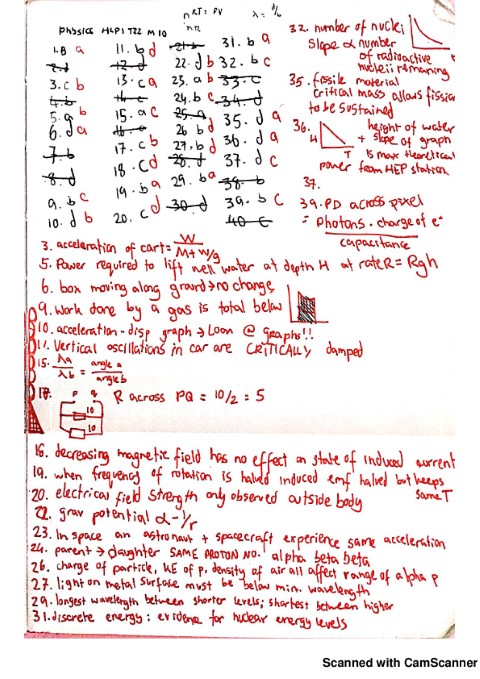 nRT = PV
Physics HLP1 TZ2 M10
1. B a
3. c b
5. a b
6. d a
9. b c
10. d b
11. b d
13. c a
15. a c
17. c b
18. c d
19. b a
20. c d
22. d b
23. a b
24. b c
26. b d
27. b d
29. b a
31. b a
32. b c
35. d a
36. d a
37. d c
39. b c
32. number of nuclei
slope α number
of radioactive
nucleii remaining
35. fossile material
critical mass allows fission
to be sustained
36. height of water
H + slope of graph
T is max theoretical
power from HEP station
37.
39. PD across pixel
= photons · charge of e⁻
capacitance
3. acceleration of cart = W
M + W/g
5. Power required to lift well water at depth H at rate R = Rgh
6. box moving along ground → no change
9. work done by a gas is total below
10. acceleration - disp graph → look @ graphs!!
11. Vertical oscillations in car are CRITICALLY damped
15. λa = angle a
λb angle b
17. R across PQ = 10/2 = 5
P Q
10
10
18. decreasing magnetic field has no effect on state of induced current
19. when frequency of rotation is halved induced emf halved but keeps
same T
20. electrical field strength only observed outside body
22. grav potential α -1/r
23. In space an astronaut + spacecraft experience same acceleration
24. parent → daughter SAME PROTON NO. alpha beta beta
26. charge of particle, KE of p. density of air all affect range of alpha p
27. light on metal surface must be below min. wavelength
29. longest wavelength between shorter levels; shortest between higher
31. discrete energy: evidence for nuclear energy levels
Scanned with CamScanner